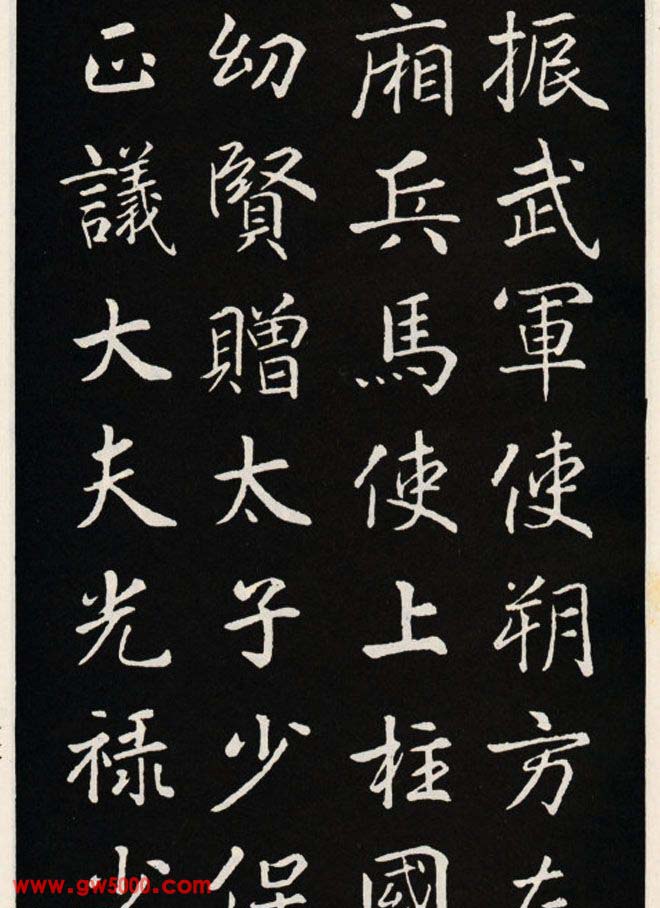 振武軍使朔方
廂兵馬使上柱國
幼賢贈太子少保
正議大夫光禄少
www.gw5000.com